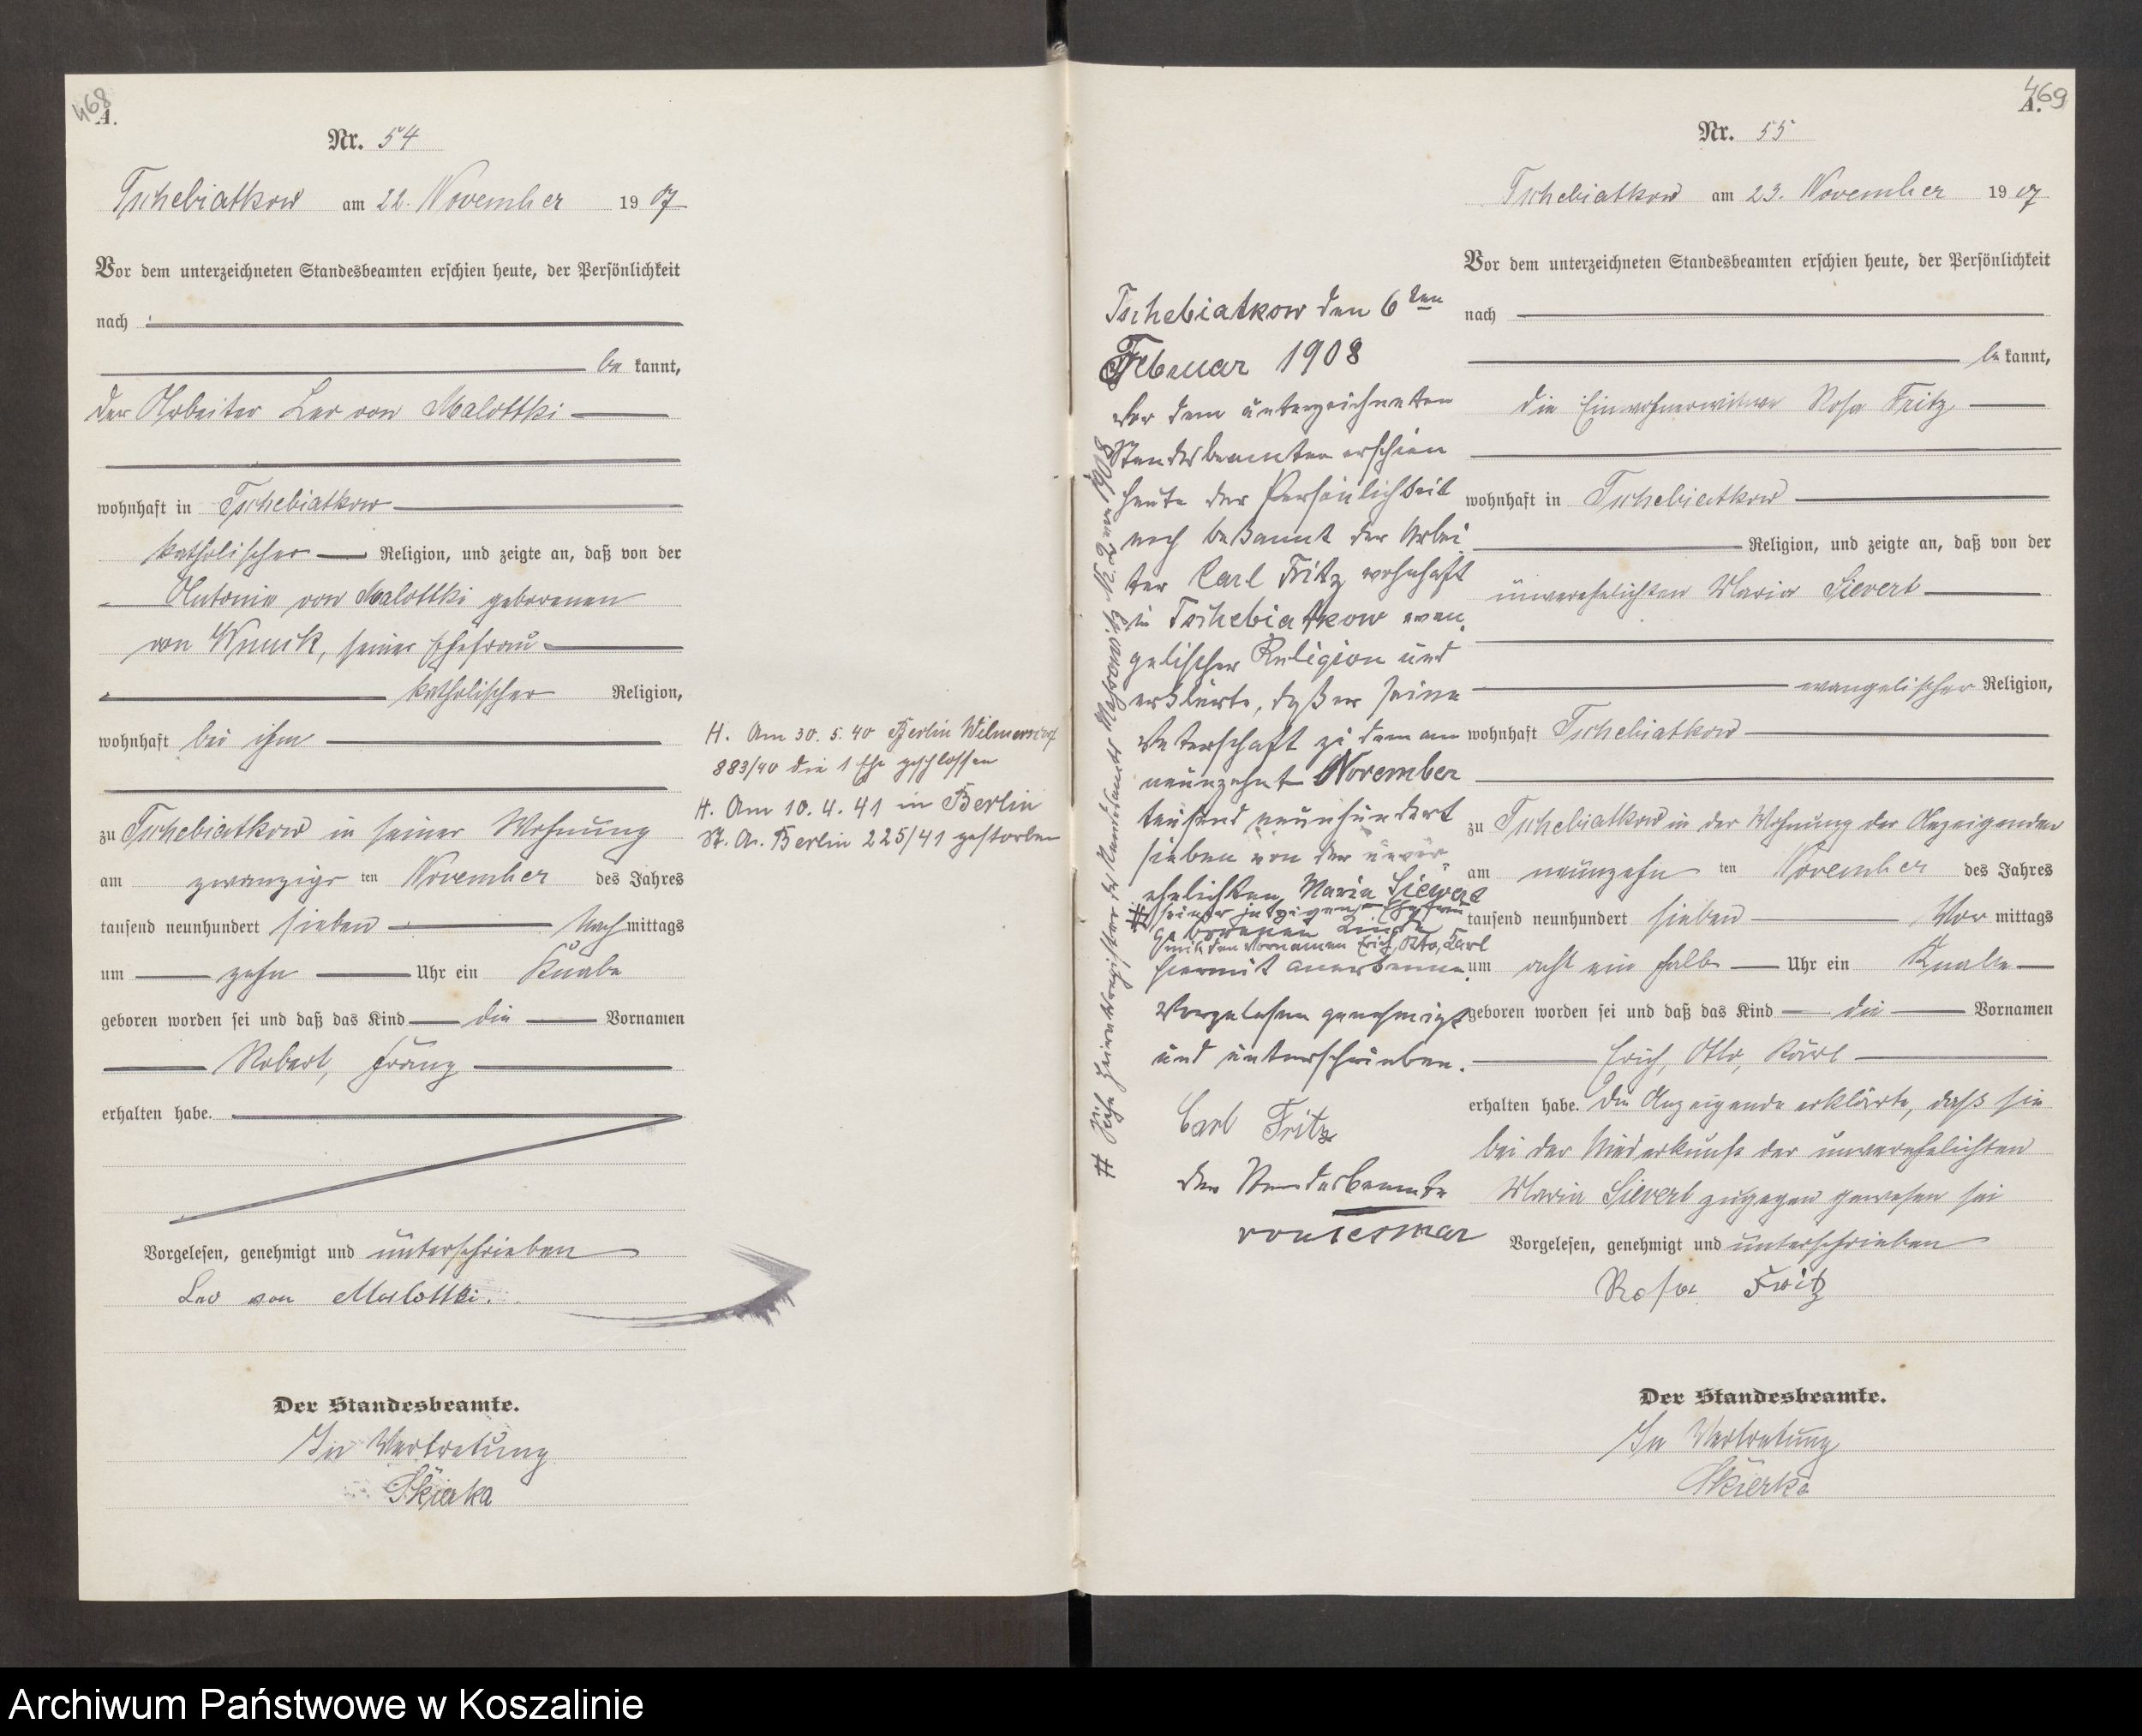 468
A.
Nr. 54
Tschebiatkow am 22. November 1907
Vor dem unterzeichneten Standesbeamten erschien heute, der Persönlichkeit
nach
be kannt,
der Arbeiter Leo von Malottki
wohnhaft in Tschebiatkow
katholischer Religion, und zeigte an, daß von der
Antonie von Malottki geborenen
von Wnuck, seiner Ehefrau
katholischer Religion,
wohnhaft bei ihm
zu Tschebiatkow in seiner Wohnung
am zwanzigs ten November des Jahres
tausend neunhundert sieben Nach mittags
um zehn Uhr ein Knabe
geboren worden sei und daß das Kind die Vornamen
Robert, Franz
erhalten habe.
Vorgelesen, genehmigt und unterschrieben
Leo von Malottki.
Der Standesbeamte.
In Vertretung
Skierka
H. Am 30. 5. 40 Berlin Wilmersdorf
883/40 die 1 Ehe geschlossen
H. Am 10. 4. 41 in Berlin
St. A. Berlin 225/41 gestorben
469
A.
Nr. 55
Tschebiatkow am 23. November 1907
Vor dem unterzeichneten Standesbeamten erschien heute, der Persönlichkeit
nach
be kannt,
die Einwohnerwitwe Rosa Fritz
wohnhaft in Tschebiatkow
Religion, und zeigte an, daß von der
unverehelichten Maria Sievert
evangelischer Religion,
wohnhaft Tschebiatkow
zu Tschebiatkow in der Wohnung der Anzeigenden
am neunzehn ten November des Jahres
tausend neunhundert sieben Vor mittags
um acht ein halb Uhr ein Knabe
geboren worden sei und daß das Kind die Vornamen
Erich, Otto, Karl
erhalten habe. Die Anzeigende erklärte, daß sie
bei der Niederkunft der unverehelichten
Maria Sievert zugegen gewesen sei
Vorgelesen, genehmigt und unterschrieben
Rosa Fritz
Der Standesbeamte.
In Vertretung
Skierka
Tschebiatkow den 6ten
Februar 1908
Vor dem unterzeichneten
Standesbeamten erschien
heute der Persönlichkeit
nach bekannt der Arbei
ter Carl Fritz wohnhaft
in Tschebiatkow evan
gelischer Religion und
erklärte, daß er seine
Vaterschaft zu dem am
neunzehnt November
tausend neunhundert
sieben von der unver
ehelichten Maria Siewert
# seiner jetzigen Ehefrau
geborenen Kinde
mit den Vornamen Erich, Otto, Karl
hiermit anerkenne.
Vorgelesen genehmigt
und unterschrieben.
Carl Fritz
der Standesbeamte
# Siehe Heiratsregister des Standesamts
Archiwum Państwowe w Koszalinie